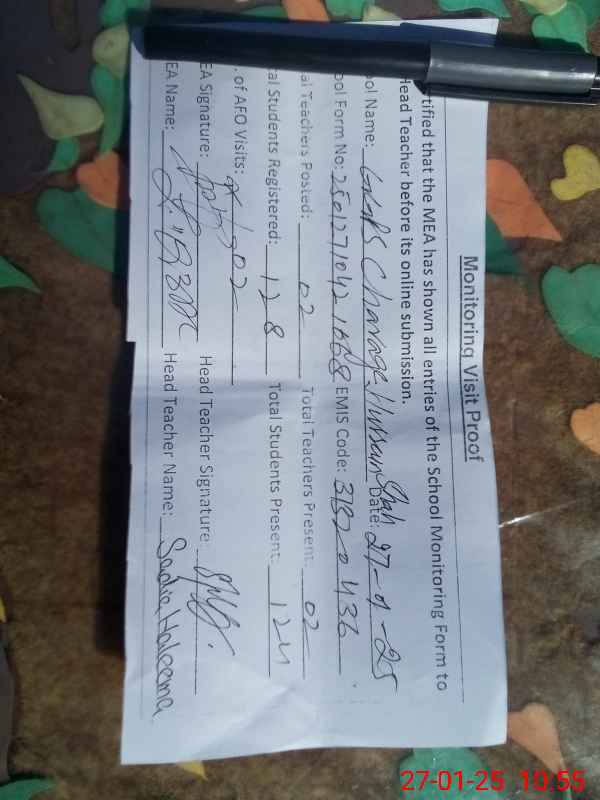 Monitoring Visit Proof
tified that the MEA has shown all entries of the School Monitoring Form to
Head Teacher before its online submission.
ool Name: GGPS Charage Hussain Shah Date: 27-1-25
ool Form No: EMIS Code: 31320436
al Teachers Posted: 02 Total Teachers Present: 02
tal Students Registered: 128 Total Students Present: 124
. of AFO Visits: 02
EA Signature: Head Teacher Signature:
EA Name: Head Teacher Name: Sadia Haleema
27-01-25 10:55